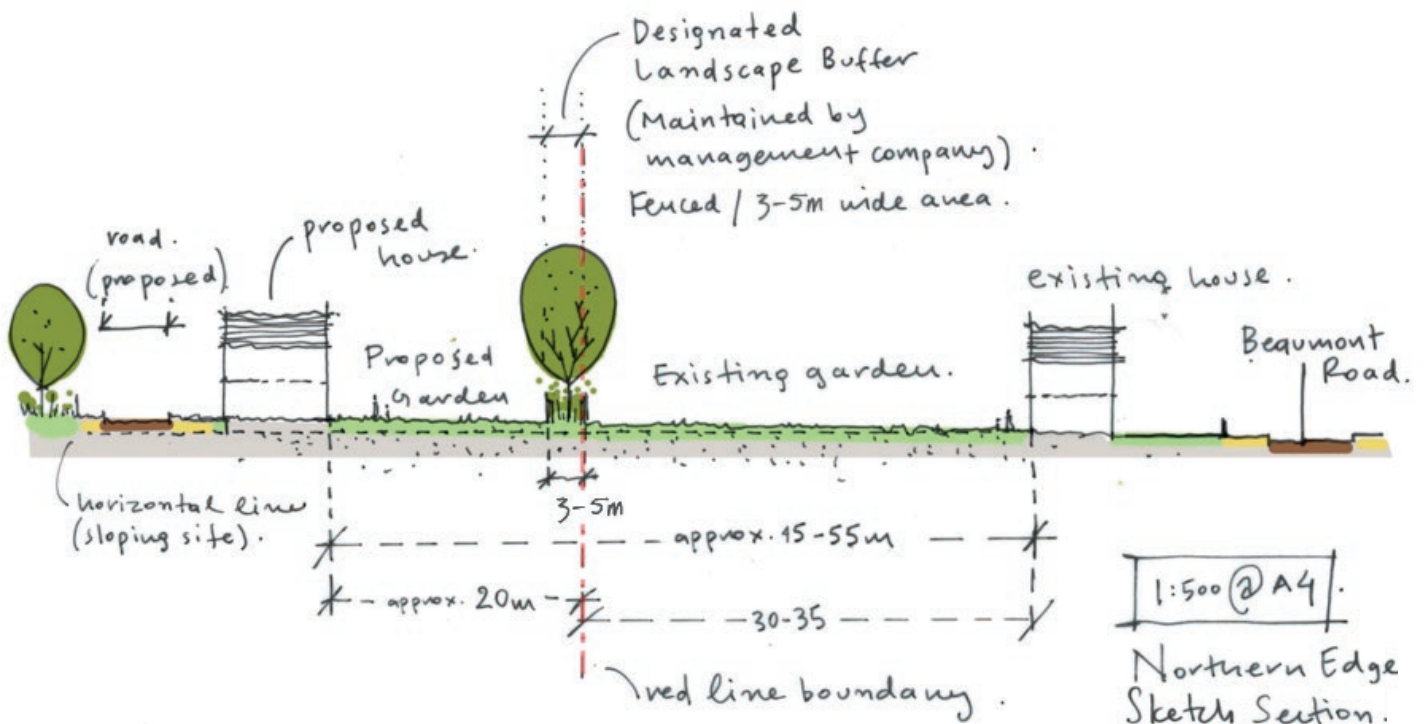 Designated
Landscape Buffer
(Maintained by
management company).
Fenced / 3-5m wide area.
road.
(proposed)
proposed
house.
existing house.
Beaumont
Road.
Proposed
Garden
Existing garden.
horizontal line
(sloping site).
3-5m
approx. 45-55m
approx. 20m
30-35
red line boundary.
1:500 @ A4.
Northern Edge
Sketch Section.